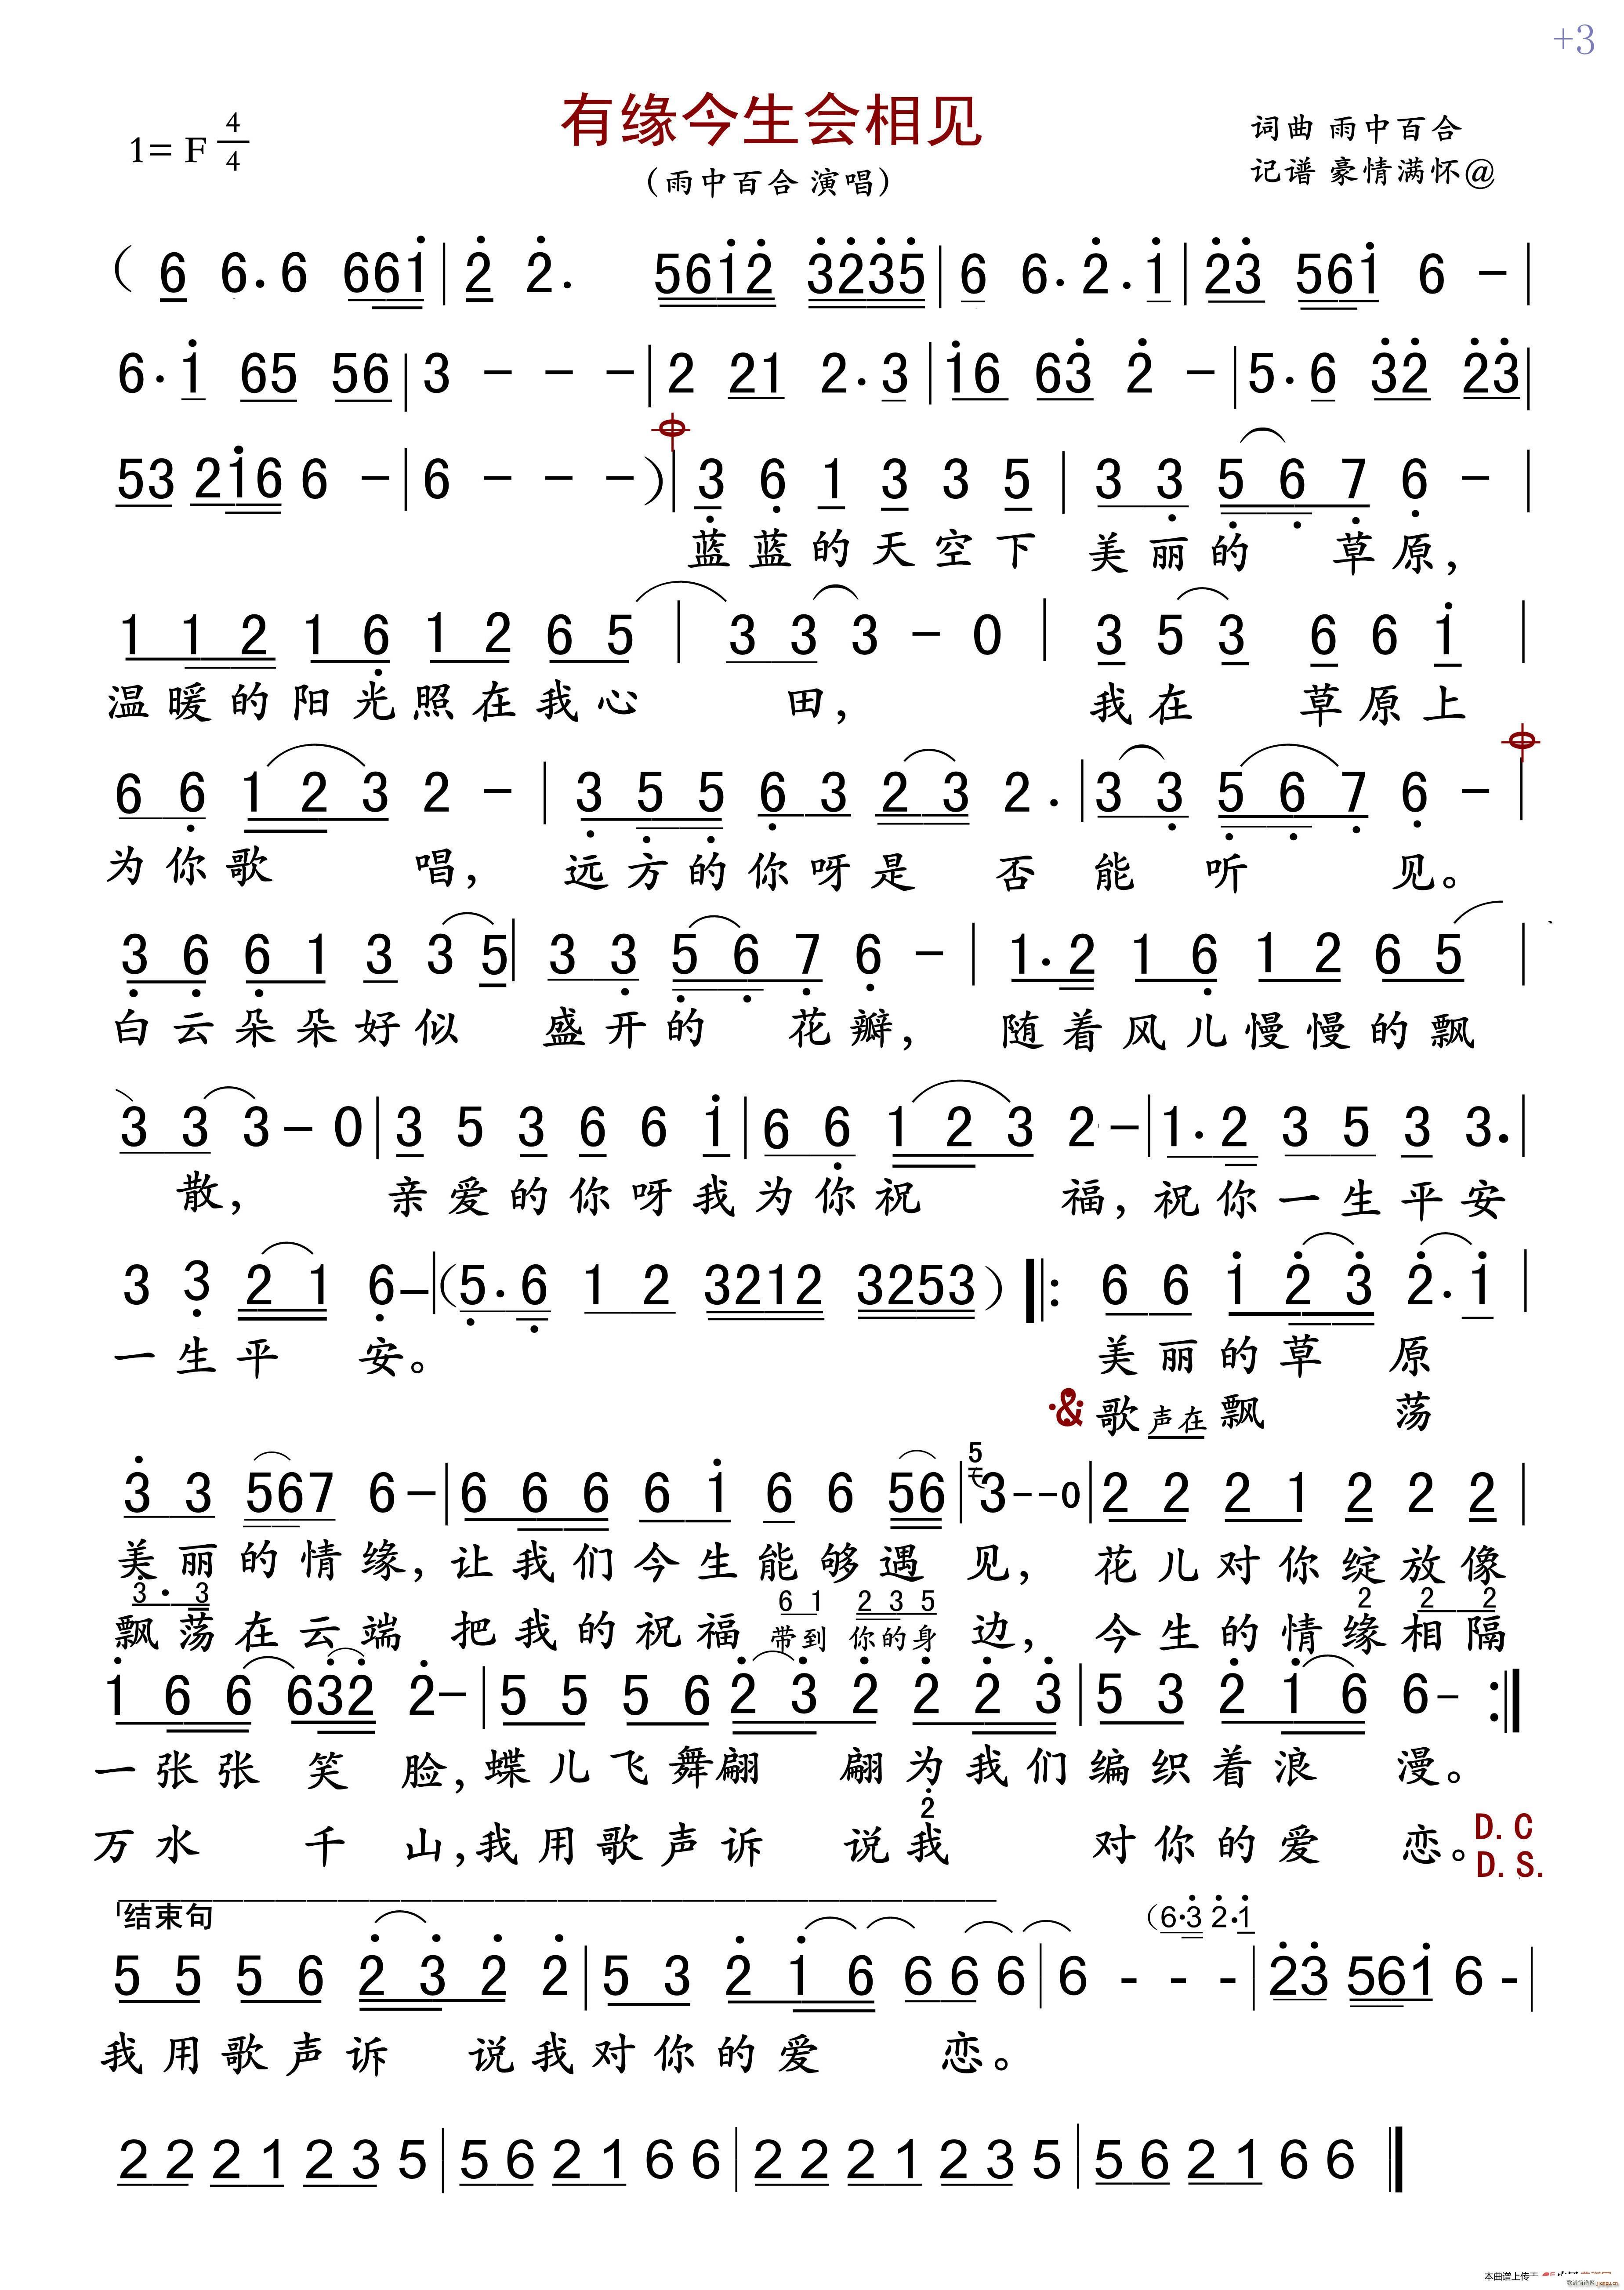 +3
有缘今生会相见
1= F 4/4
词曲 雨中百合
(雨中百合 演唱)
记谱 豪情满怀@
( 6 6. 6 661 | 2 2. 5612 3235 | 6 6. 2. 1 | 23 561 6 - |
6. 1 65 56 | 3 - - - | 2 21 2. 3 | 16 63 2 - | 5. 6 32 23 |
53 216 6 - | 6 - - - ) | 3 6 1 3 3 5 | 3 3 5 6 7 6 - |
蓝蓝的天空下 美丽的 草原,
1 1 2 1 6 1 2 6 5 | 3 3 3 - 0 | 3 5 3 6 6 1 |
温暖的阳光照在我心 田, 我在 草原上
6 6 1 2 3 2 - | 3 5 5 6 3 2 3 2. | 3 3 5 6 7 6 - |
为你歌 唱, 远方的你呀是 否 能 听 见。
3 6 6 1 3 3 5 | 3 3 5 6 7 6 - | 1. 2 1 6 1 2 6 5 |
白云朵朵好似 盛开的 花瓣, 随着风儿慢慢的飘
3 3 3 - 0 | 3 5 3 6 6 1 | 6 6 1 2 3 2 - | 1. 2 3 5 3 3. |
散, 亲爱的你呀我为你祝 福, 祝你一生平安
3 3 2 1 6 - | ( 5. 6 1 2 3212 3253 ) |: 6 6 1 2 3 2. 1 |
一生平 安。 美丽的草 原
& 歌声在飘 荡
3 3 567 6 - | 6 6 6 6 1 6 6 56 | 5 3 - - 0 | 2 2 2 1 2 2 2 |
美丽的情缘, 让我们今生能够遇 见, 花儿对你绽放像
3 . 3 6 1 2 3 5 2 2 2
飘荡在云端 把我的祝福 带到 你的身 边, 今生的情缘相隔
1 6 6 632 2 - | 5 5 5 6 2 3 2 2 2 3 | 5 3 2 1 6 6 - :|
一张张 笑 脸, 蝶儿飞舞翩 翩为我们编织着浪 漫。
2
万水 千 山, 我用歌声诉 说我 对你的爱 恋。 D.C
D.S.
结束句 (6.3 2.1
5 5 5 6 2 3 2 2 | 5 3 2 1 6 6 6 6 | 6 - - - | 23 561 6 - |
我用歌声诉 说我对你的爱 恋。
2 2 2 1 2 3 5 | 5 6 2 1 6 6 | 2 2 2 1 2 3 5 | 5 6 2 1 6 6 ||
本曲谱上传于